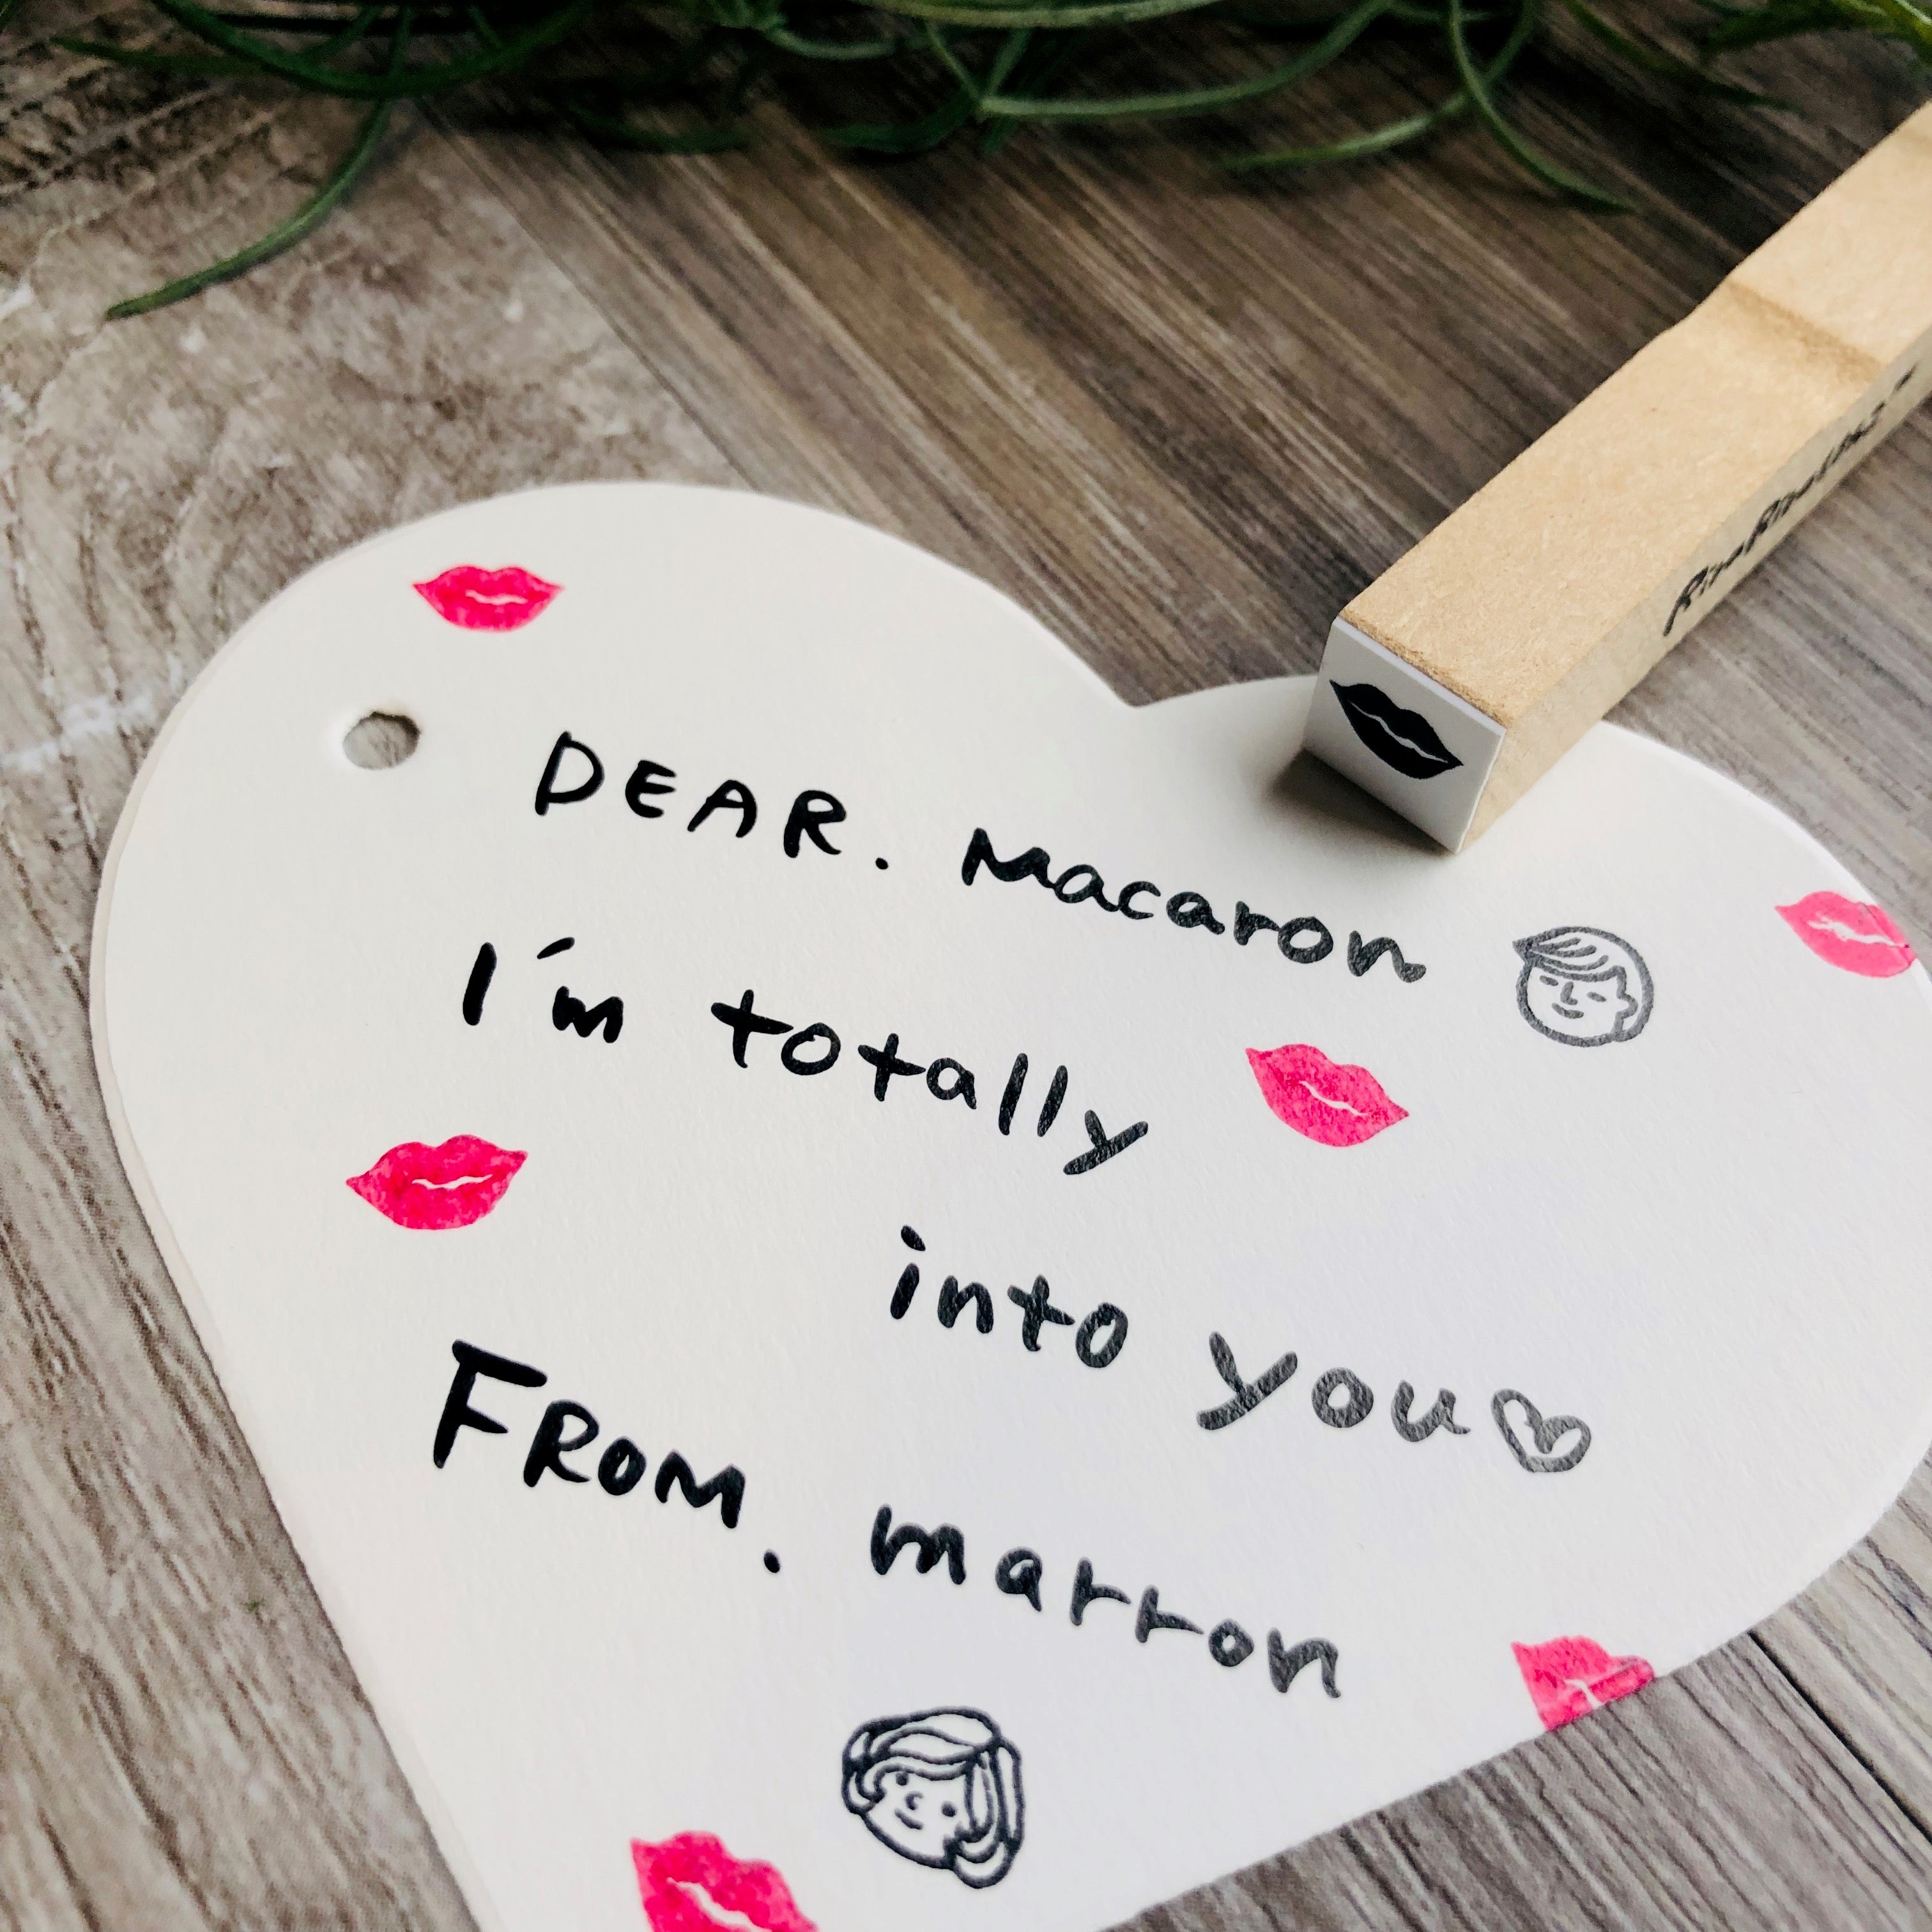 DEAR. Macaron
I'm totally
into you♡
FROM. marron